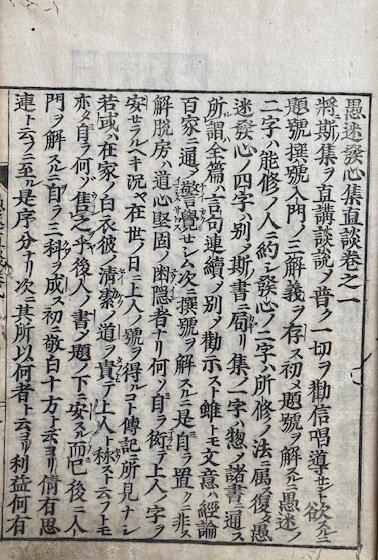 愚迷發心集直談卷之一
將ニ斯集ヲ直講談説〆普ク一切ヲ勸信唱導セント欲スルニ
題號撰號入門ノ三解義ヲ存ス初メ題號ヲ解スルニ愚迷ノ
二字ハ能修ノ人ニ約シ發心ノ二字ハ所修ノ法ニ属復愚
迷發心ノ四字ハ別〆斯書ニ局リ集ノ一字ハ惣〆諸書ニ通ス
所謂全篇ハ言句連續〆別〆勸示スト雖トモ文意ハ經論
百家ニ通〆警覺セシム次ニ撰號ヲ解スルニ是自ラ置クニ非ス
解脱房ハ道心堅固ノ幽隱者ナリ何ソ自ラ衒テ上人ノ字ヲ
安セラルヘキ況ヤ在世ノ日ニ上人ノ號ヲ得ルコト傳記所見ナシ
若或ハ在家ノ白衣彼ノ清素ノ道ヲ貴テ上人ト称スト云フトモ
亦タ自ラ何ソ集之乎後人ノ書〆題ノ下ニ安スル而巳後ニ入
門ヲ解スルニ自ラ三科ヲ成ス初ニ敬白十方ト云ヨリ倩有思
連ト云フニ至ルハ是序分ナリ次ニ其所以何者ト云ヨリ利益何有